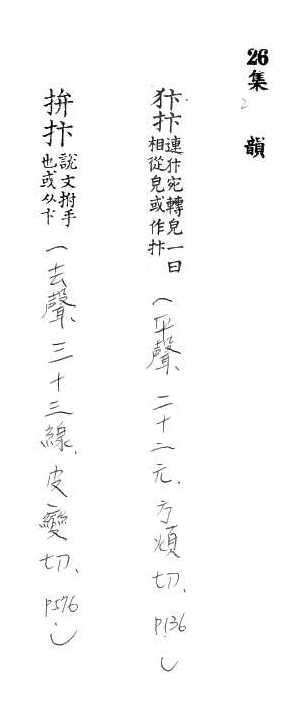 26集韻
2
犿抃連犿宛轉皃一曰相從皃或作抃（平聲、二十二元、方煩切、P136）
拚抃說文拊手也或从卞（去聲、三十三線、皮變切、P576）